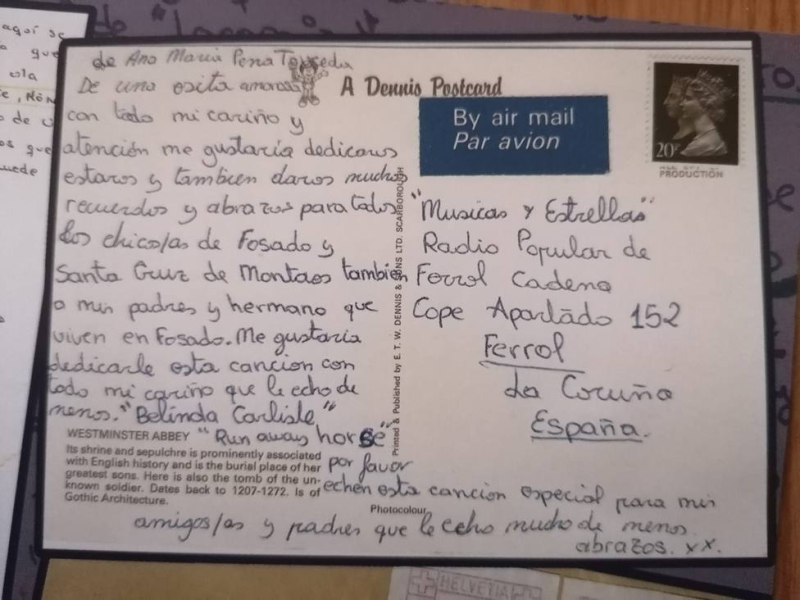 aquí se
que
ola
de Ana Maria Pena
De una osita amorosa
con todo mi cariño y
atención me gustaria dedicaros
estaros y tambien daros muchos
recuerdos y abrazos para todos
los chicos/as de Fosado y
Santa Cruz de Montaos tambien
a mis padres y hermano que
viven en Fosado. Me gustaria
dedicarle esta cancion con
todo mi cariño que le echo de
menos. "Belinda Carlisle"
"Run away horse"
por favor
echen esta cancion especial para mis
amigos/as y padres que le echo mucho de menos.
abrazos. xx.
WESTMINSTER ABBEY
Its shrine and sepulchre is prominently associated
with English history and is the burial place of her
greatest sons. Here is also the tomb of the un-
known soldier. Dates back to 1207-1272. Is of
Gothic Architecture.
Photocolour
Printed & Published by E. T. W. DENNIS & SONS LTD. SCARBOROUGH
A Dennis Postcard
By air mail
Par avion
20
PRODUCTION
"Musicas y Estrellas"
Radio Popular de
Ferrol Cadena
Cope Apartado 152
Ferrol
La Coruña
España.
HELVETIA